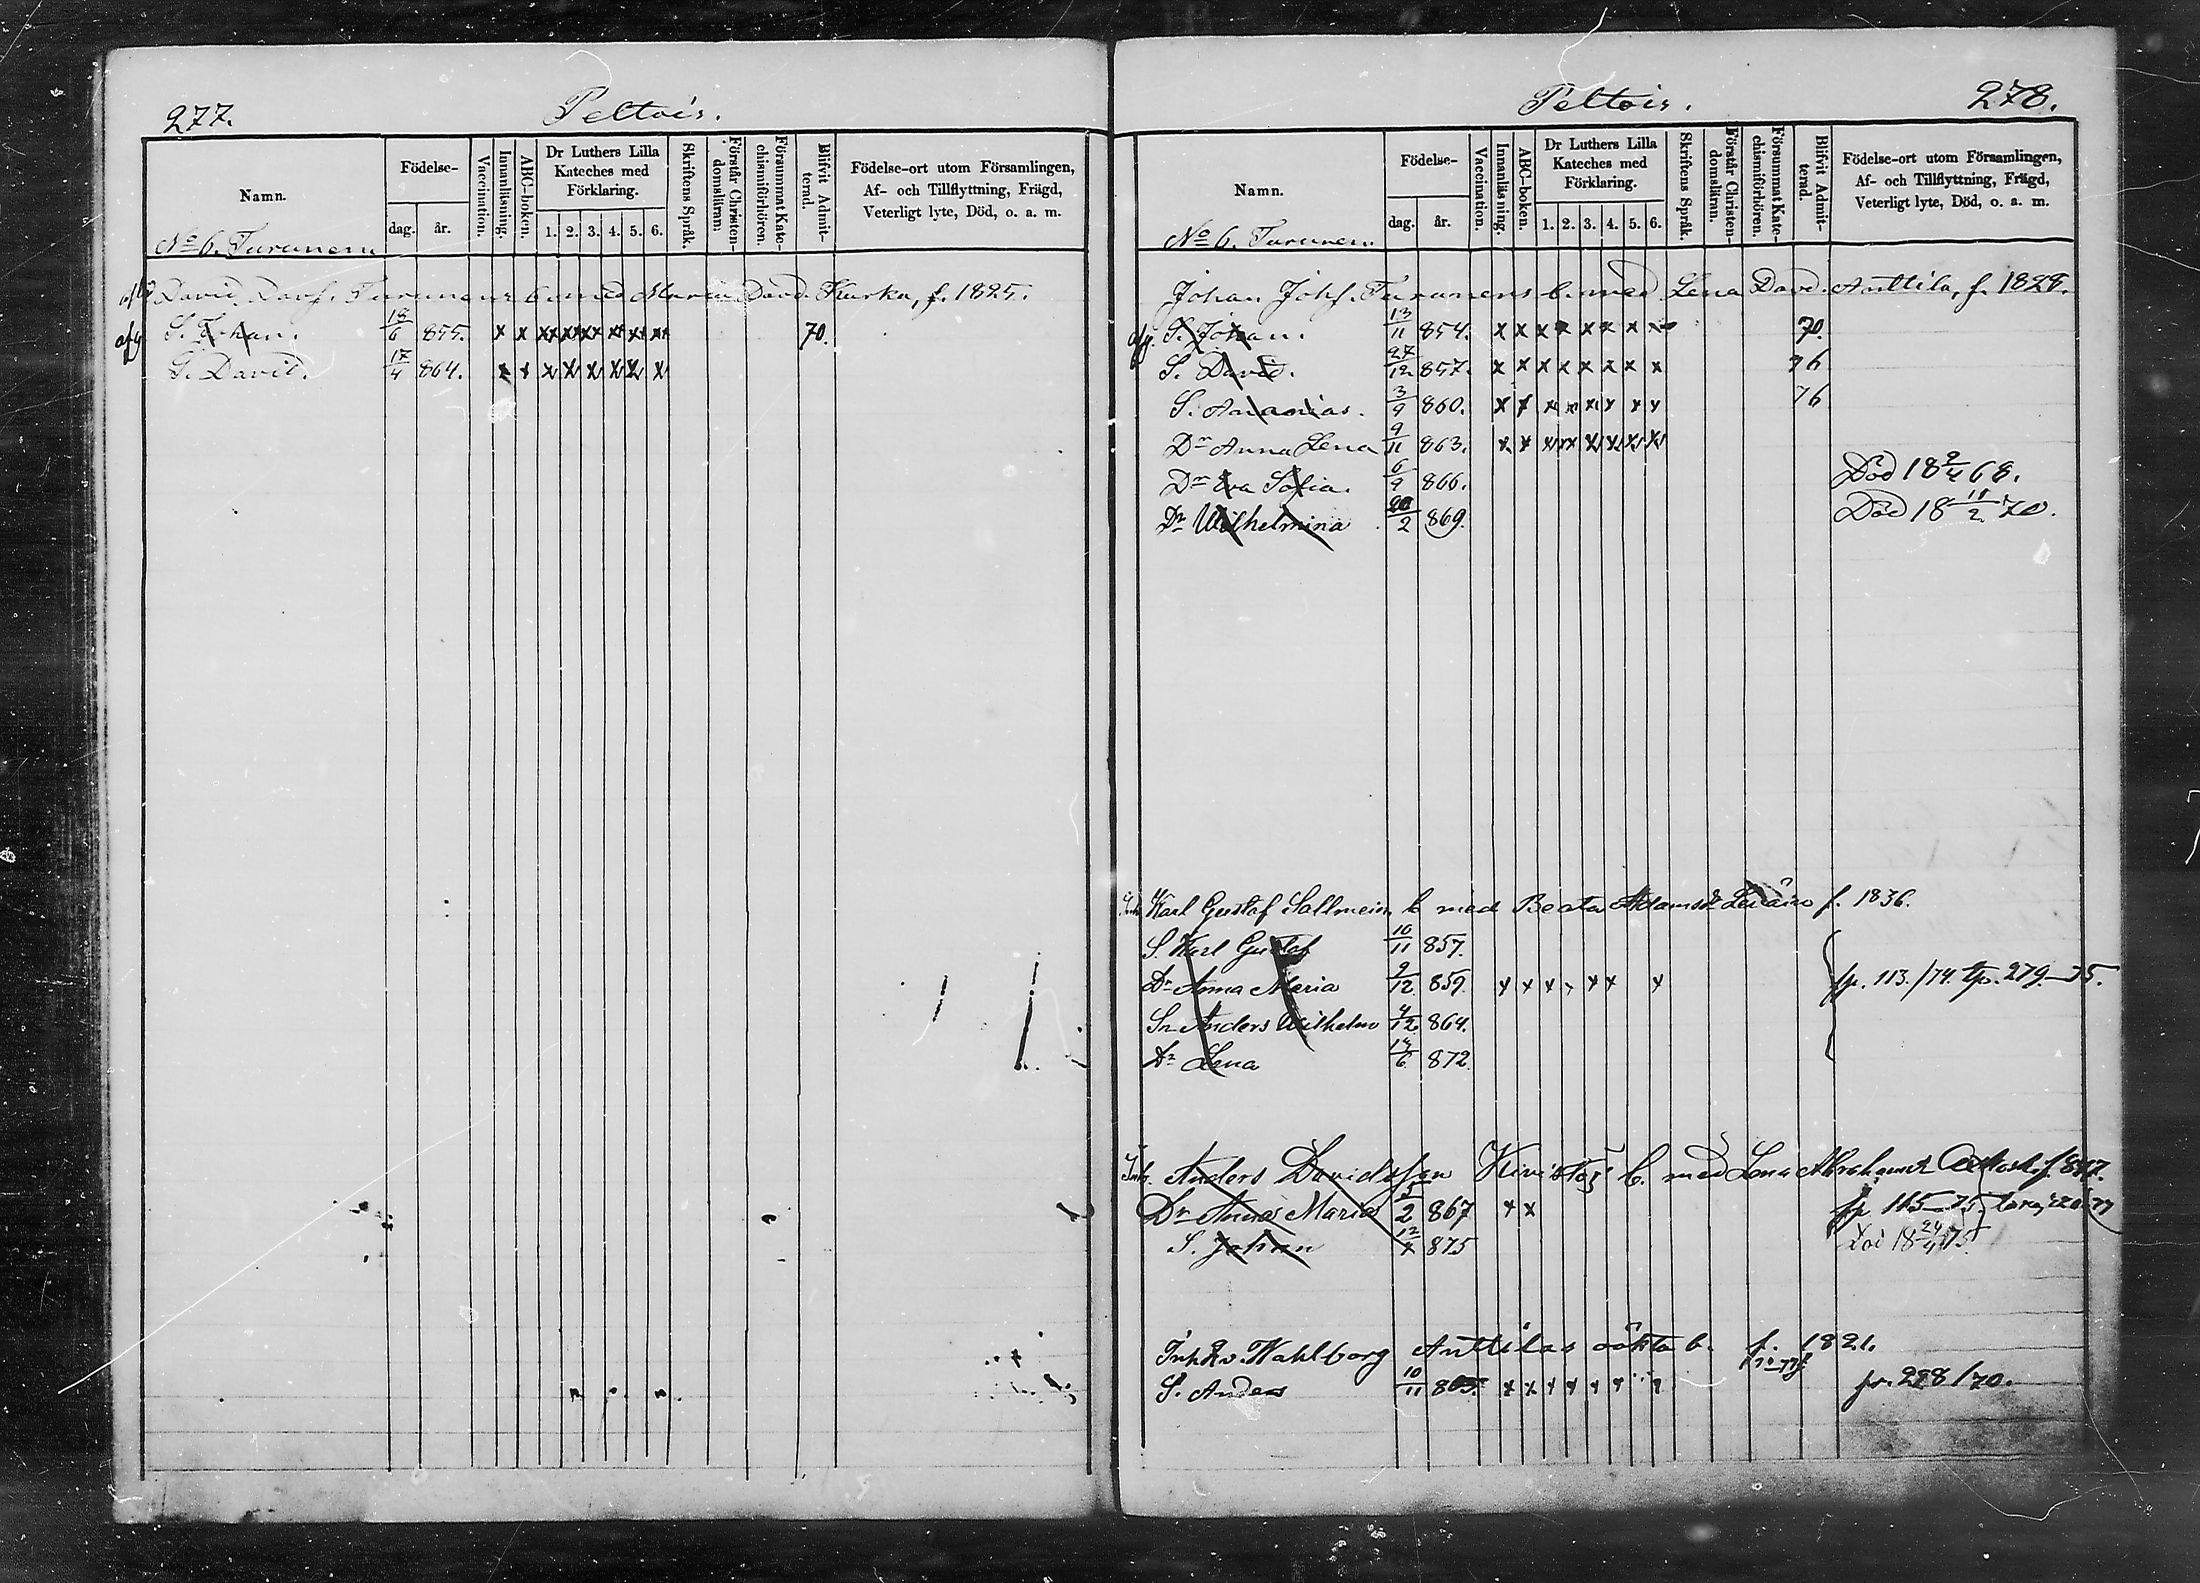 277. Peltois.
Namn. Födelse- dag. år. Vaccination. Innanläsning. ABC-boken. Dr Luthers Lilla Kateches med Förklaring. 1. 2. 3. 4. 5. 6. Skriftens Språk. Förstår Christendomsläran. Försummat Katechismiförhören. Blifvit Admitterad. Födelse-ort utom Församlingen, Af- och Tillflyttning, Frägd, Veterligt lyte, Död, o. a. m.
No 6. Turunen
David Davs. Turunens b. med Maria Davd. Kurka, f. 1825.
afg S. Johan. 18/6 855. x x x x x x x x 70.
S. David. 17/4 864. x x x x x x x x
Peltois. 278.
Namn. Födelse- dag. år. Vaccination. Innanläsning. ABC-boken. Dr Luthers Lilla Kateches med Förklaring. 1. 2. 3. 4. 5. 6. Skriftens Språk. Förstår Christendomsläran. Försummat Katechismiförhören. Blifvit Admitterad. Födelse-ort utom Församlingen, Af- och Tillflyttning, Frägd, Veterligt lyte, Död, o. a. m.
No 6. Turunen.
Johan Johs. Turunens b. med Lena Davd. Anttila, f. 1828.
afg. S. Johan. 13/11 854. x x x x x x x x 70.
S. David. 27/12 857. x x x x x x x x 76
S. Ananias. 3/9 860. x x x x x x x x 76
Dr Anna Lena 9/11 863. x x x x x x x x
Dr Eva Sofia. 6/9 866. Död 18 2/4 68.
Dr Wilhelmina 20/2 869. Död 18 11/2 70.
Karl Gustaf Sallmein b med Beata Adamsdr f. 1836.
S. Karl Gustaf 10/11 857.
Dr Anna Maria 9/12 859. x x x x x x x fp. 113./74. tp. 279-75.
Sn Anders Wilhelm 4/12 864.
Dr Lena 14/6 872.
Inh. Anders Davidsson Kivistös b. med Lena Abrahamsdr f. 847.
Dr Anna Maria 5/2 867 x x fp 115-75
S. Johan 12/4 875 Död 18 24/4 75.
Inh. Wahlborg Anttilas oäkta b. f. 1821.
S. Anders 10/11 865. x x x x x x x fr. 228/70.